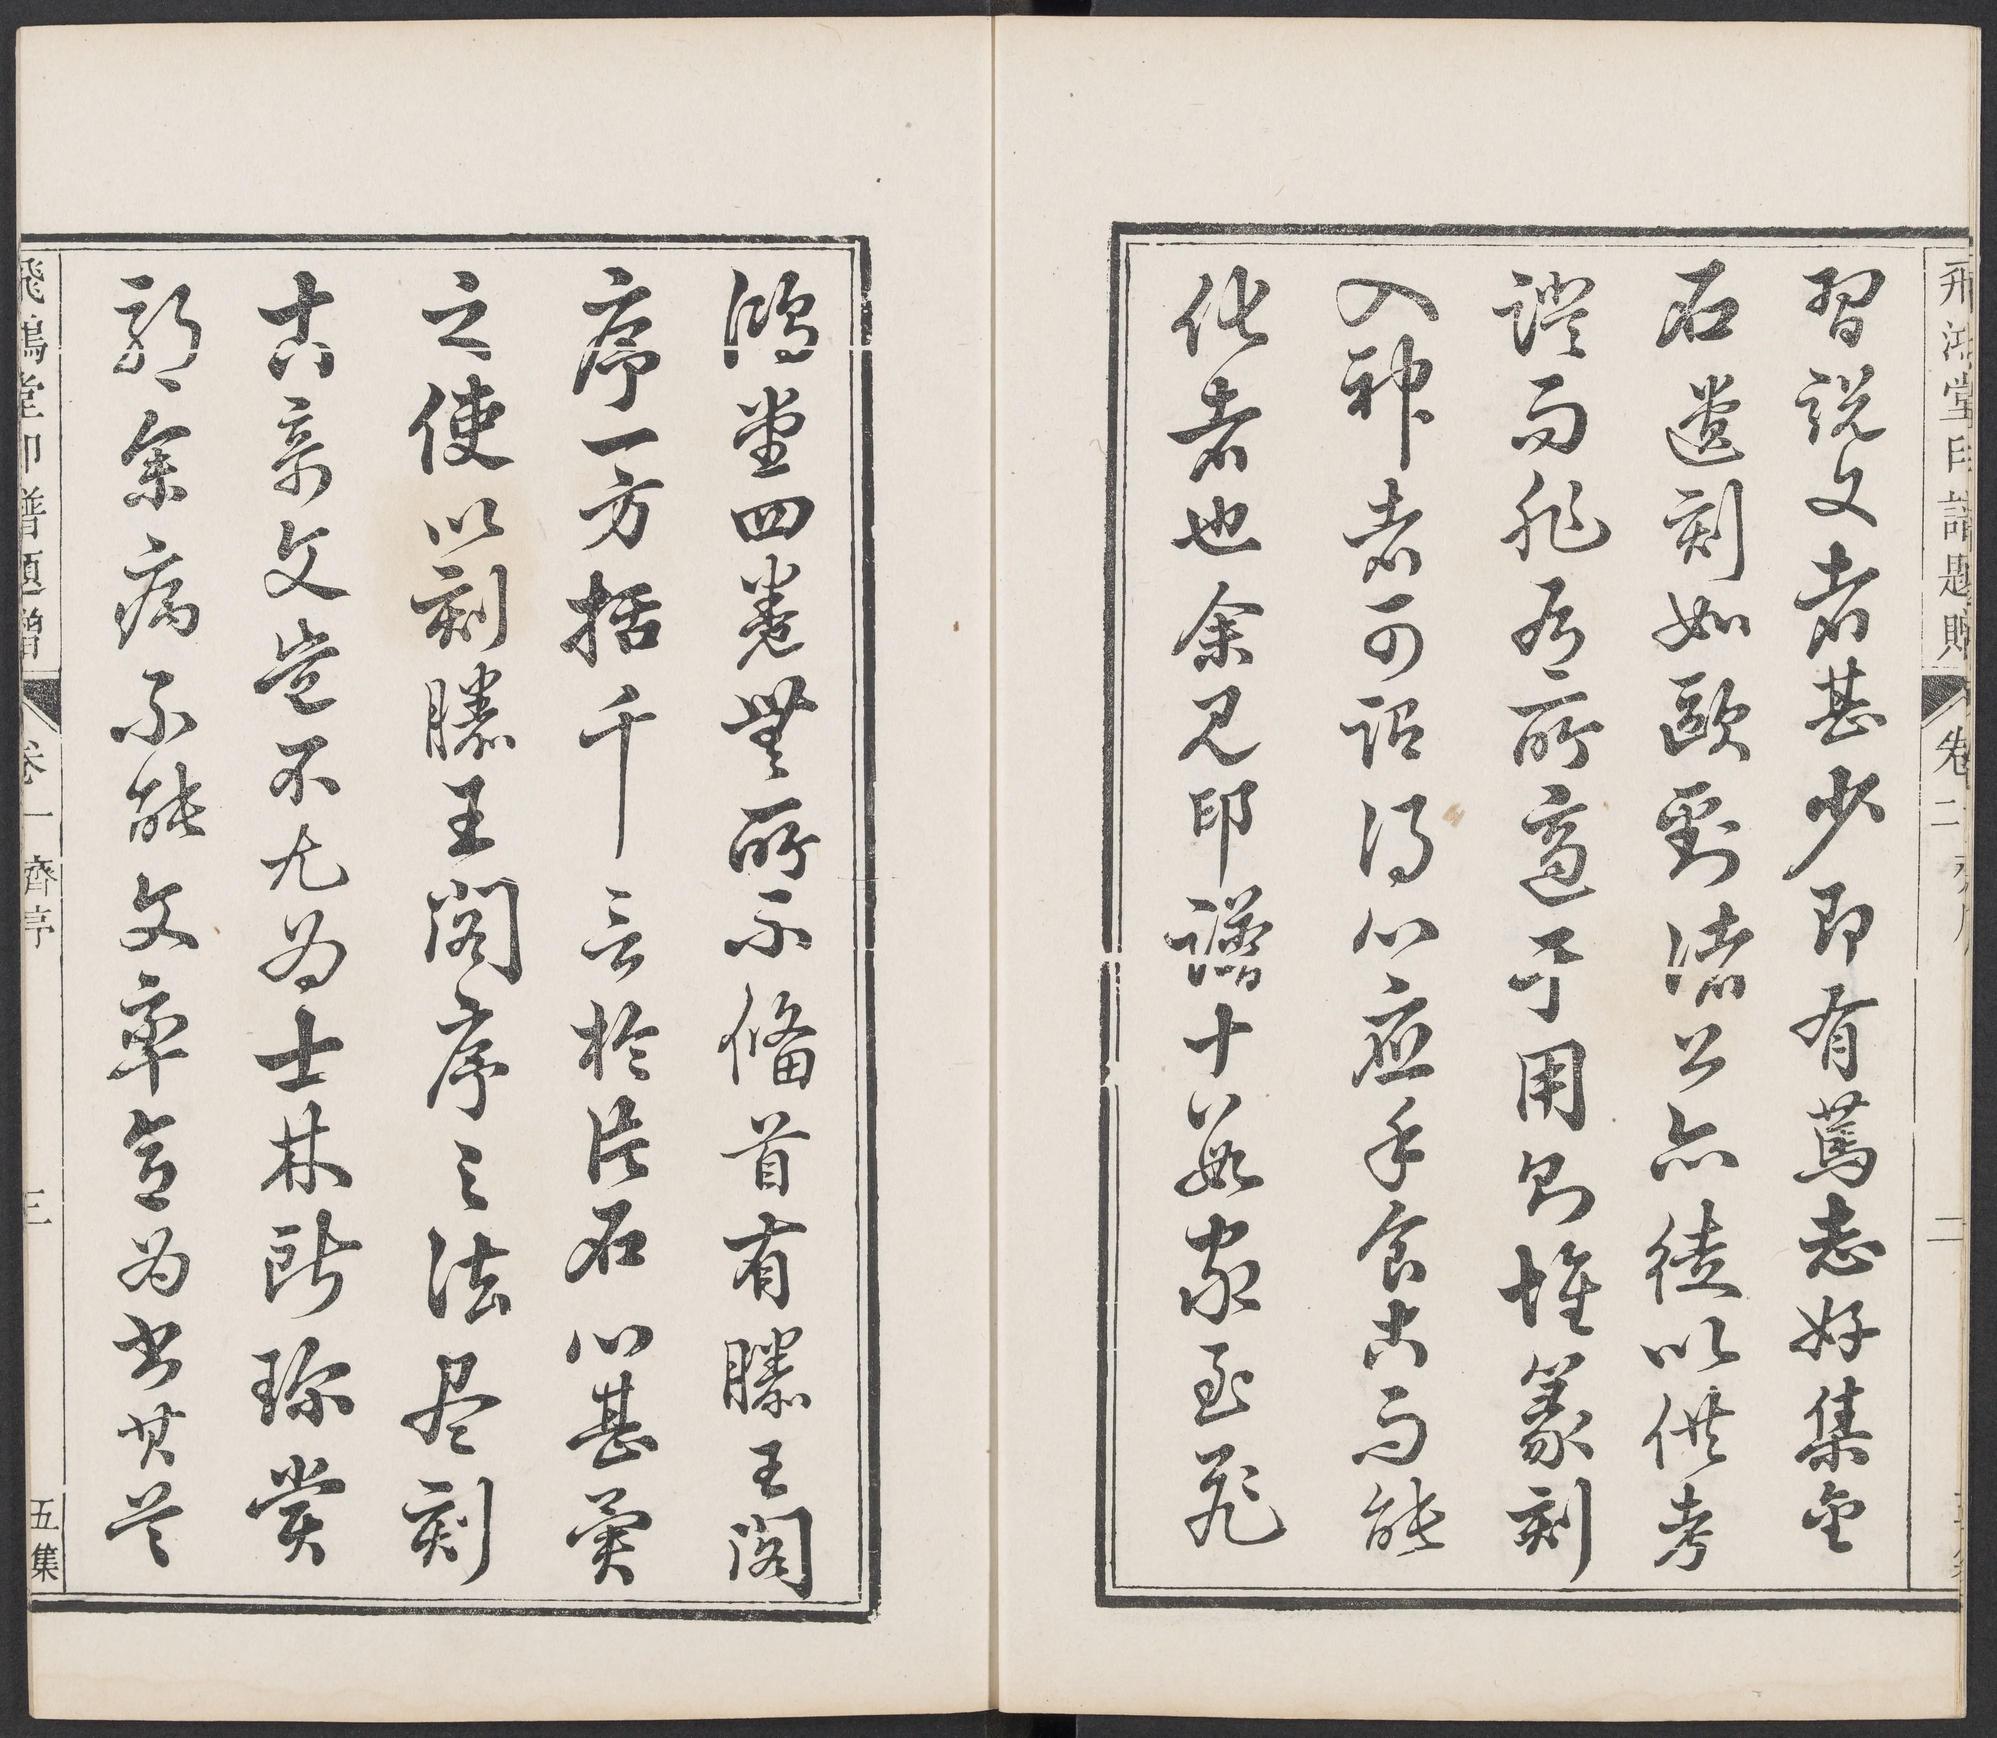 飛鴻堂印譜題贈 卷二 二
習說文者甚少即有篤志好集金
石遺刻如歐劉諸公亦徒以供考
證而非有所適于用名堆篆刻
入神者可語得心應手食古而能
化者也余見印譜十數家至飛
鴻堂四卷無所不備首有滕王閣
序一方括千言於片石心甚異
之使以刻滕王閣序之法盡刻
古章文豈不尤為士林所珍賞
耶余病不能文率意為書其
飛鴻堂印譜題贈 卷一 齊序 三 五集